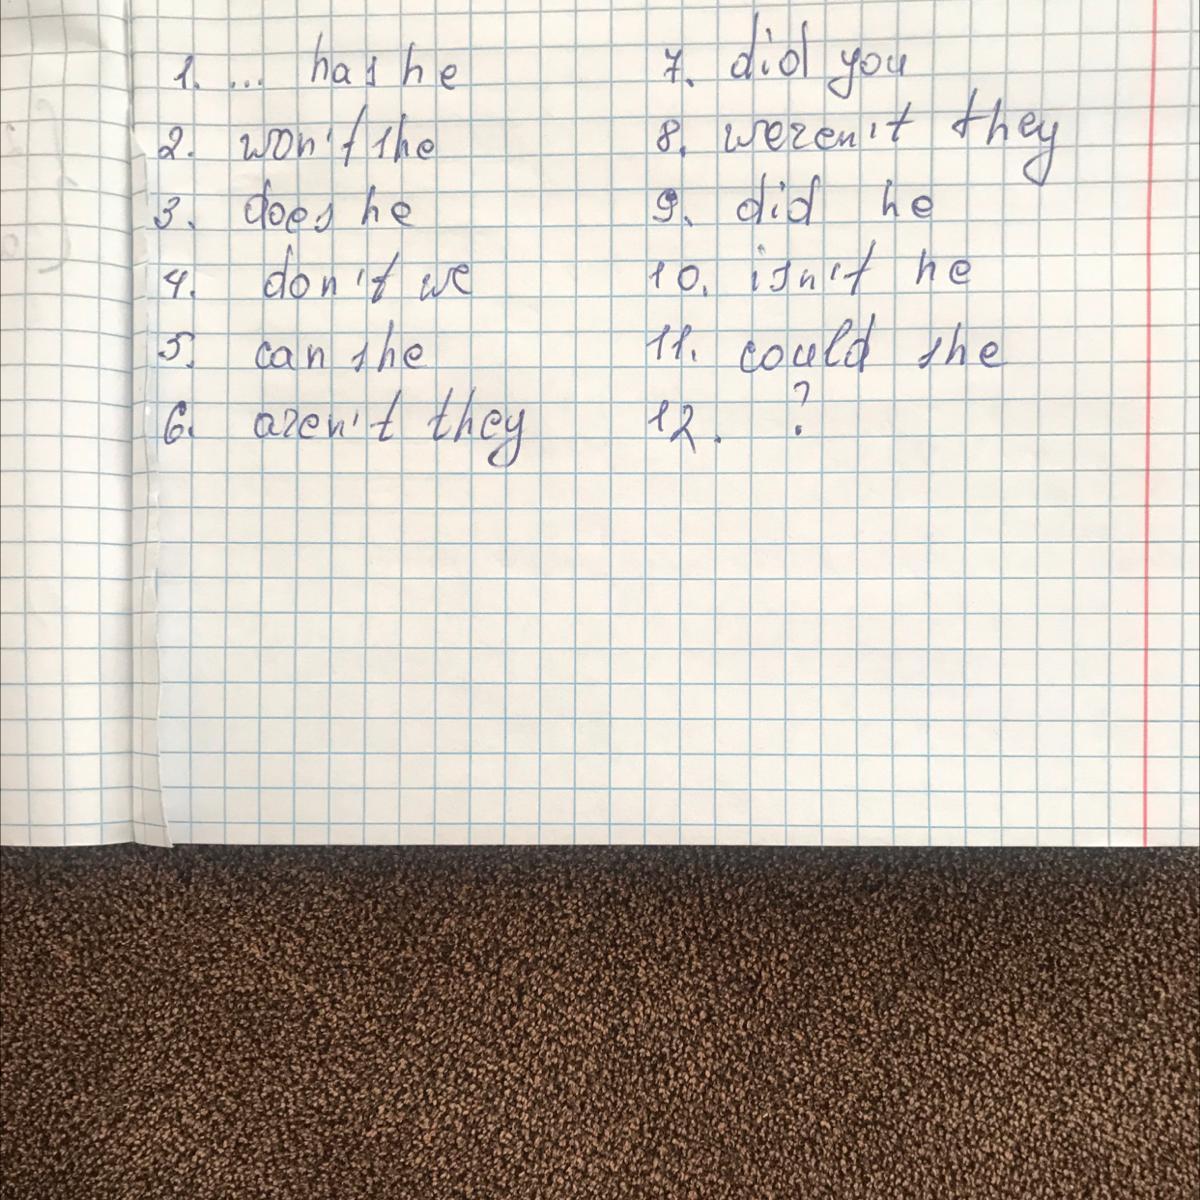 1. ... has he
2. won't she
3. does he
4. don't we
5. can she
6. aren't they
7. did you
8. weren't they
9. did he
10. isn't he
11. could she
12. ?